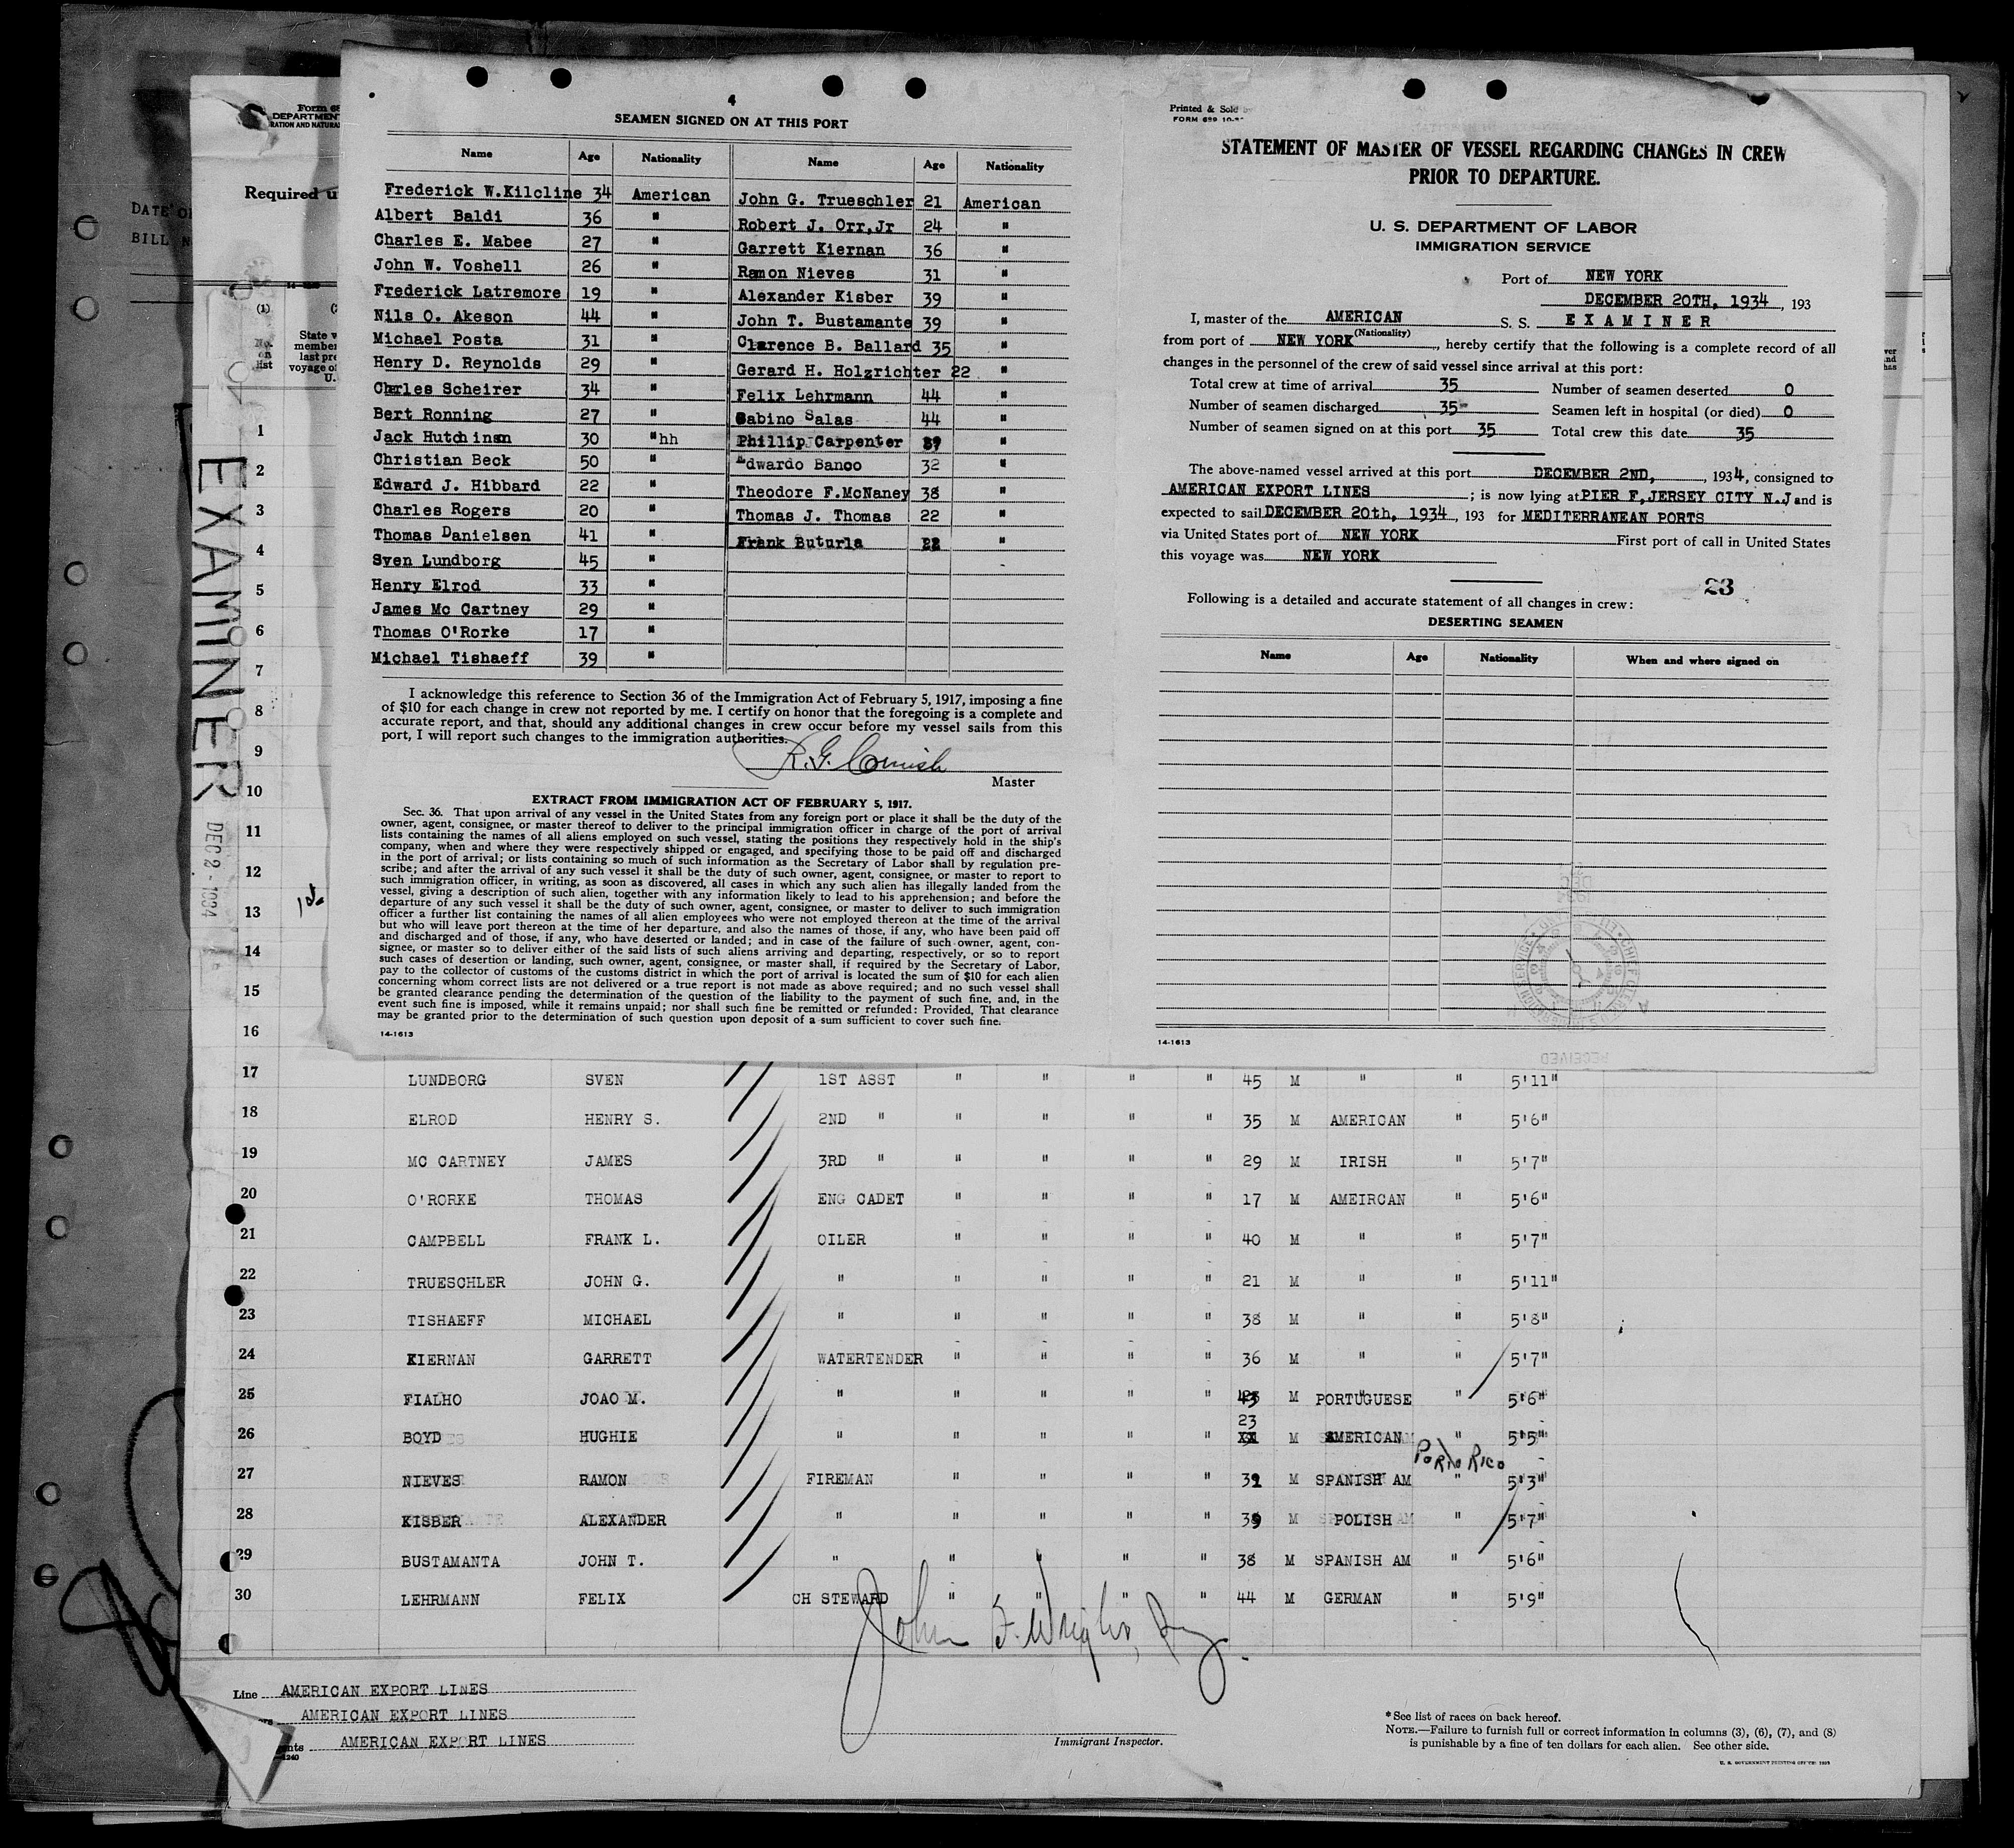 Form 68
DEPARTMENT
RATION AND NATURA
Required u
DATE O
BILL N
(1)
No.
on
list
State v
member
last pre
voyage of
U.
EXAMINER
DEC 2 - 1934
4
SEAMEN SIGNED ON AT THIS PORT
Name Age Nationality Name Age Nationality
Frederick W.Kilcline 34 American John G. Trueschler 21 American
Albert Baldi 36 " Robert J. Orr,Jr 24 "
Charles E. Mabee 27 " Garrett Kiernan 36 "
John W. Voshell 26 " Ramon Nieves 31 "
Frederick Latremore 19 " Alexander Kisber 39 "
Nils O. Akeson 44 " John T. Bustamante 39 "
Michael Posta 31 " Clarence B. Ballard 35 "
Henry D. Reynolds 29 " Gerard H. Holzrichter 22 "
Charles Scheirer 34 " Felix Lehrmann 44 "
Bert Ronning 27 " Sabino Salas 44 "
Jack Hutchinsn 30 "hh Phillip Carpenter "
Christian Beck 50 " Edwardo Banco 32 "
Edward J. Hibbard 22 " Theodore F.McNaney 38 "
Charles Rogers 20 " Thomas J. Thomas 22 "
Thomas Danielsen 41 " Frank Buturla 22 "
Sven Lundborg 45 "
Henry Elrod 33 "
James Mc Cartney 29 "
Thomas O'Rorke 17 "
Michael Tishaeff 39 "
I acknowledge this reference to Section 36 of the Immigration Act of February 5, 1917, imposing a fine
of $10 for each change in crew not reported by me. I certify on honor that the foregoing is a complete and
accurate report, and that, should any additional changes in crew occur before my vessel sails from this
port, I will report such changes to the immigration authorities.
R. G. Cornish
Master
EXTRACT FROM IMMIGRATION ACT OF FEBRUARY 5, 1917.
Sec. 36. That upon arrival of any vessel in the United States from any foreign port or place it shall be the duty of the
owner, agent, consignee, or master thereof to deliver to the principal immigration officer in charge of the port of arrival
lists containing the names of all aliens employed on such vessel, stating the positions they respectively hold in the ship's
company, when and where they were respectively shipped or engaged, and specifying those to be paid off and discharged
in the port of arrival; or lists containing so much of such information as the Secretary of Labor shall by regulation pre-
scribe; and after the arrival of any such vessel it shall be the duty of such owner, agent, consignee, or master to report to
such immigration officer, in writing, as soon as discovered, all cases in which any such alien has illegally landed from the
vessel, giving a description of such alien, together with any information likely to lead to his apprehension; and before the
departure of any such vessel it shall be the duty of such owner, agent, consignee, or master to deliver to such immigration
officer a further list containing the names of all alien employees who were not employed thereon at the time of the arrival
but who will leave port thereon at the time of her departure, and also the names of those, if any, who have been paid off
and discharged and of those, if any, who have deserted or landed; and in case of the failure of such owner, agent, con-
signee, or master so to deliver either of the said lists of such aliens arriving and departing, respectively, or so to report
such cases of desertion or landing, such owner, agent, consignee, or master shall, if required by the Secretary of Labor,
pay to the collector of customs of the customs district in which the port of arrival is located the sum of $10 for each alien
concerning whom correct lists are not delivered or a true report is not made as above required; and no such vessel shall
be granted clearance pending the determination of the question of the liability to the payment of such fine, and, in the
event such fine is imposed, while it remains unpaid; nor shall such fine be remitted or refunded: Provided, That clearance
may be granted prior to the determination of such question upon deposit of a sum sufficient to cover such fine.
14-1613
Printed & Sold
FORM 689
STATEMENT OF MASTER OF VESSEL REGARDING CHANGES IN CREW
PRIOR TO DEPARTURE.
U. S. DEPARTMENT OF LABOR
IMMIGRATION SERVICE
Port of NEW YORK
DECEMBER 20TH, 1934, 193
I, master of the AMERICAN S. S. EXAMINER
(Nationality)
from port of NEW YORK, hereby certify that the following is a complete record of all
changes in the personnel of the crew of said vessel since arrival at this port:
Total crew at time of arrival 35 Number of seamen deserted 0
Number of seamen discharged 35 Seamen left in hospital (or died) 0
Number of seamen signed on at this port 35 Total crew this date 35
The above-named vessel arrived at this port DECEMBER 2ND, , 1934, consigned to
AMERICAN EXPORT LINES ; is now lying at PIER F, JERSEY CITY N.J and is
expected to sail DECEMBER 20th, 1934, 193 for MEDITERRANEAN PORTS
via United States port of NEW YORK First port of call in United States
this voyage was NEW YORK
23
Following is a detailed and accurate statement of all changes in crew:
DESERTING SEAMEN
Name Age Nationality When and where signed on
14-1613
1
2
3
4
5
6
7
8
9
10
11
12
13
14
15
16
17 LUNDBORG SVEN 1ST ASST " " " " 45 M " " 5'11"
18 ELROD HENRY S. 2ND " " " " " 35 M AMERICAN " 5'6"
19 MC CARTNEY JAMES 3RD " " " " " 29 M IRISH " 5'7"
20 O'RORKE THOMAS ENG CADET " " " " 17 M AMEIRCAN " 5'6"
21 CAMPBELL FRANK L. OILER " " " " 40 M " " 5'7"
22 TRUESCHLER JOHN G. " " " " " 21 M " " 5'11"
23 TISHAEFF MICHAEL " " " " " 38 M " " 5'8"
24 KIERNAN GARRETT WATERTENDER " " " " 36 M " " 5'7"
25 FIALHO JOAO M. " " " " " 43 M PORTUGUESE " 5'6"
26 BOYD HUGHIE " " " " " 23 M AMERICAN " 5'5"
PORTO RICO
27 NIEVES RAMON FIREMAN " " " " 32 M SPANISH AM " 5'3"
28 KISBER ALEXANDER " " " " " 39 M POLISH " 5'7"
29 BUSTAMANTA JOHN T. " " " " " 38 M SPANISH AM " 5'6"
30 LEHRMANN FELIX CH STEWARD " " " " 44 M GERMAN " 5'9"
Line AMERICAN EXPORT LINES
AMERICAN EXPORT LINES
AMERICAN EXPORT LINES
Immigrant Inspector.
*See list of races on back hereof.
NOTE.—Failure to furnish full or correct information in columns (3), (6), (7), and (8)
is punishable by a fine of ten dollars for each alien. See other side.
U. S. GOVERNMENT PRINTING OFFICE